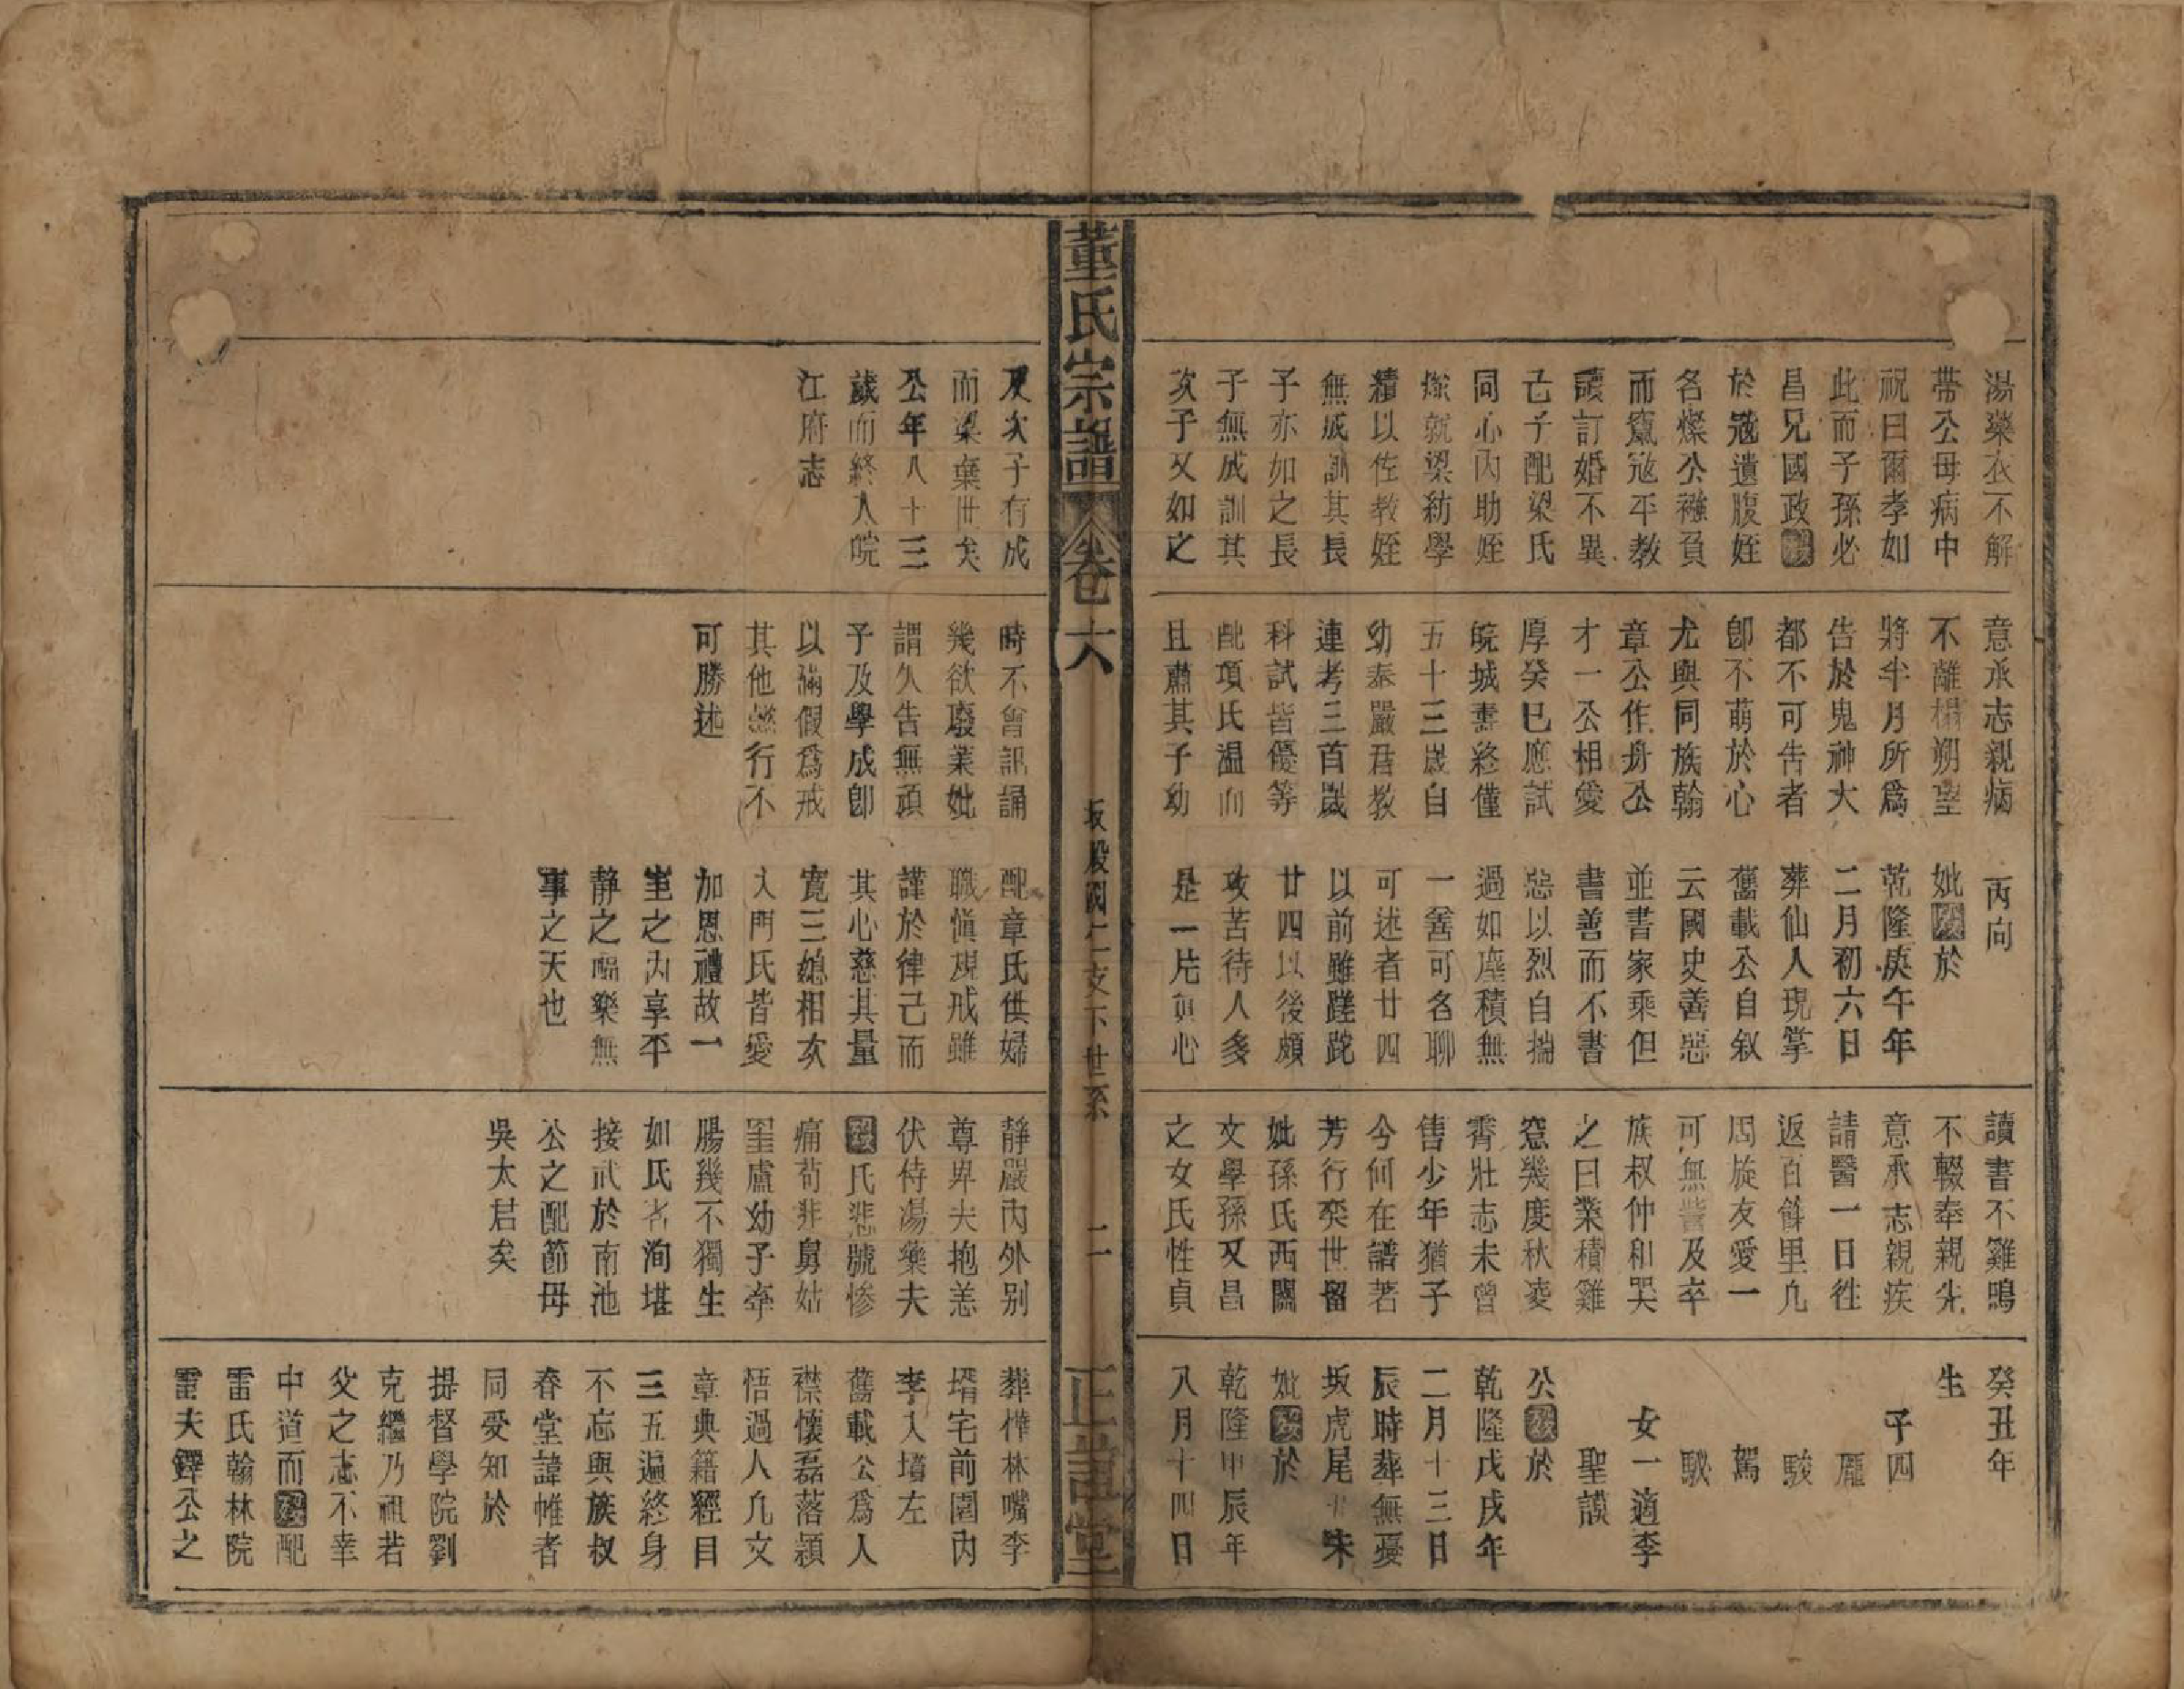 湯藥衣不解
帶公母病中
祝曰爾孝如
此而子孫必
昌兄國政歿
於寇遺腹姪
名燦公襁負
而竄寇平教
讀訂婚不異
己子配梁氏
同心內助姪
燦就梁紡學
績以佐教姪
無成訓其長
子亦如之長
子無成訓其
次子又如之
及次子有成
而梁棄世矣
公年八十三
歲而終入皖
江府志
意承志親病
不離榻朔望
將半月所爲
告於鬼神大
都不可告者
卽不萌於心
尤與同族翰
章公作舟公
才一公相愛
厚癸巳應試
皖城壽終僅
五十三歲自
幼泰嚴君教
連考三首歲
科試皆優等
配項氏温而
且肅其子幼
時不會訊誦
幾欲廢業妣
謂久告無頑
予及學成卽
以滿假爲戒
其他懿行不
可勝述
丙向
妣歿於
乾隆庚午年
二月初六日
葬仙人現掌
舊載公自叙
云國史善惡
並書家乘但
書善而不書
惡以烈自揣
過如塵積無
一善可名聊
可述者廿四
以前雖蹉跎
廿四以後頗
攻苦待人多
是一片真心
配章氏供婦
職慎規戒雖
謹於律己而
其心慈其量
寬三媳相次
入門氏皆愛
加恩禮故一
室之內享平
靜之福樂無
事之天也
讀書不雞鳴
不輟奉親先
意承志親疾
請醫一日徃
返百餘里凡
周旋友愛一
可無訾及卒
族叔仲和哭
之曰業積雞
窓幾度秋凌
霄壯志未曾
售少年猶子
今何在譜著
芳行奕世留
妣孫氏西關
文學孫又昌
之女氏性貞
靜嚴內外別
尊卑夫抱恙
伏侍湯藥夫
歿氏悲號慘
痛茍非舅姑
堊盧幼子牽
腸幾不獨生
如氏者洵堪
接武於南池
公之配節母
吳太君矣
癸丑年
生
子四
龐
駿
駕
駛
女一適李
聖謨
公歿於
乾隆戊戌年
二月十三日
辰時葬無憂
坂虎尾廿朱
妣歿於
乾隆甲辰年
八月十四日
葬樺林嘴李
壻宅前園內
李人墳左
舊載公爲人
襟懷磊落穎
悟過人凡文
章典籍經目
三五遍終身
不忘與族叔
春堂諱帷者
同受知於
提督學院劉
克繼乃祖若
父之志不幸
中道而歿配
雷氏翰林院
雷夫鐸公之
董氏宗譜
卷六
坂股國仁支下世系
二
正誼堂